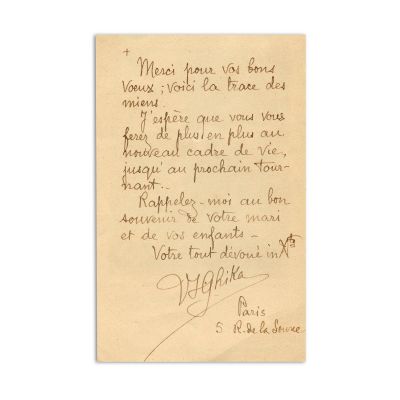 +
Merci pour vos bons
vœux ; voici la trace des
miens.
J'espère que vous vous
ferez de plus en plus au
nouveau cadre de vie,
jusqu'au prochain tour-
nant.-
Rappelez-moi au bon
souvenir de votre mari
et de vos enfants -
Votre tout dévoué in Xto
VIGhika
Paris
5 R. de la Source